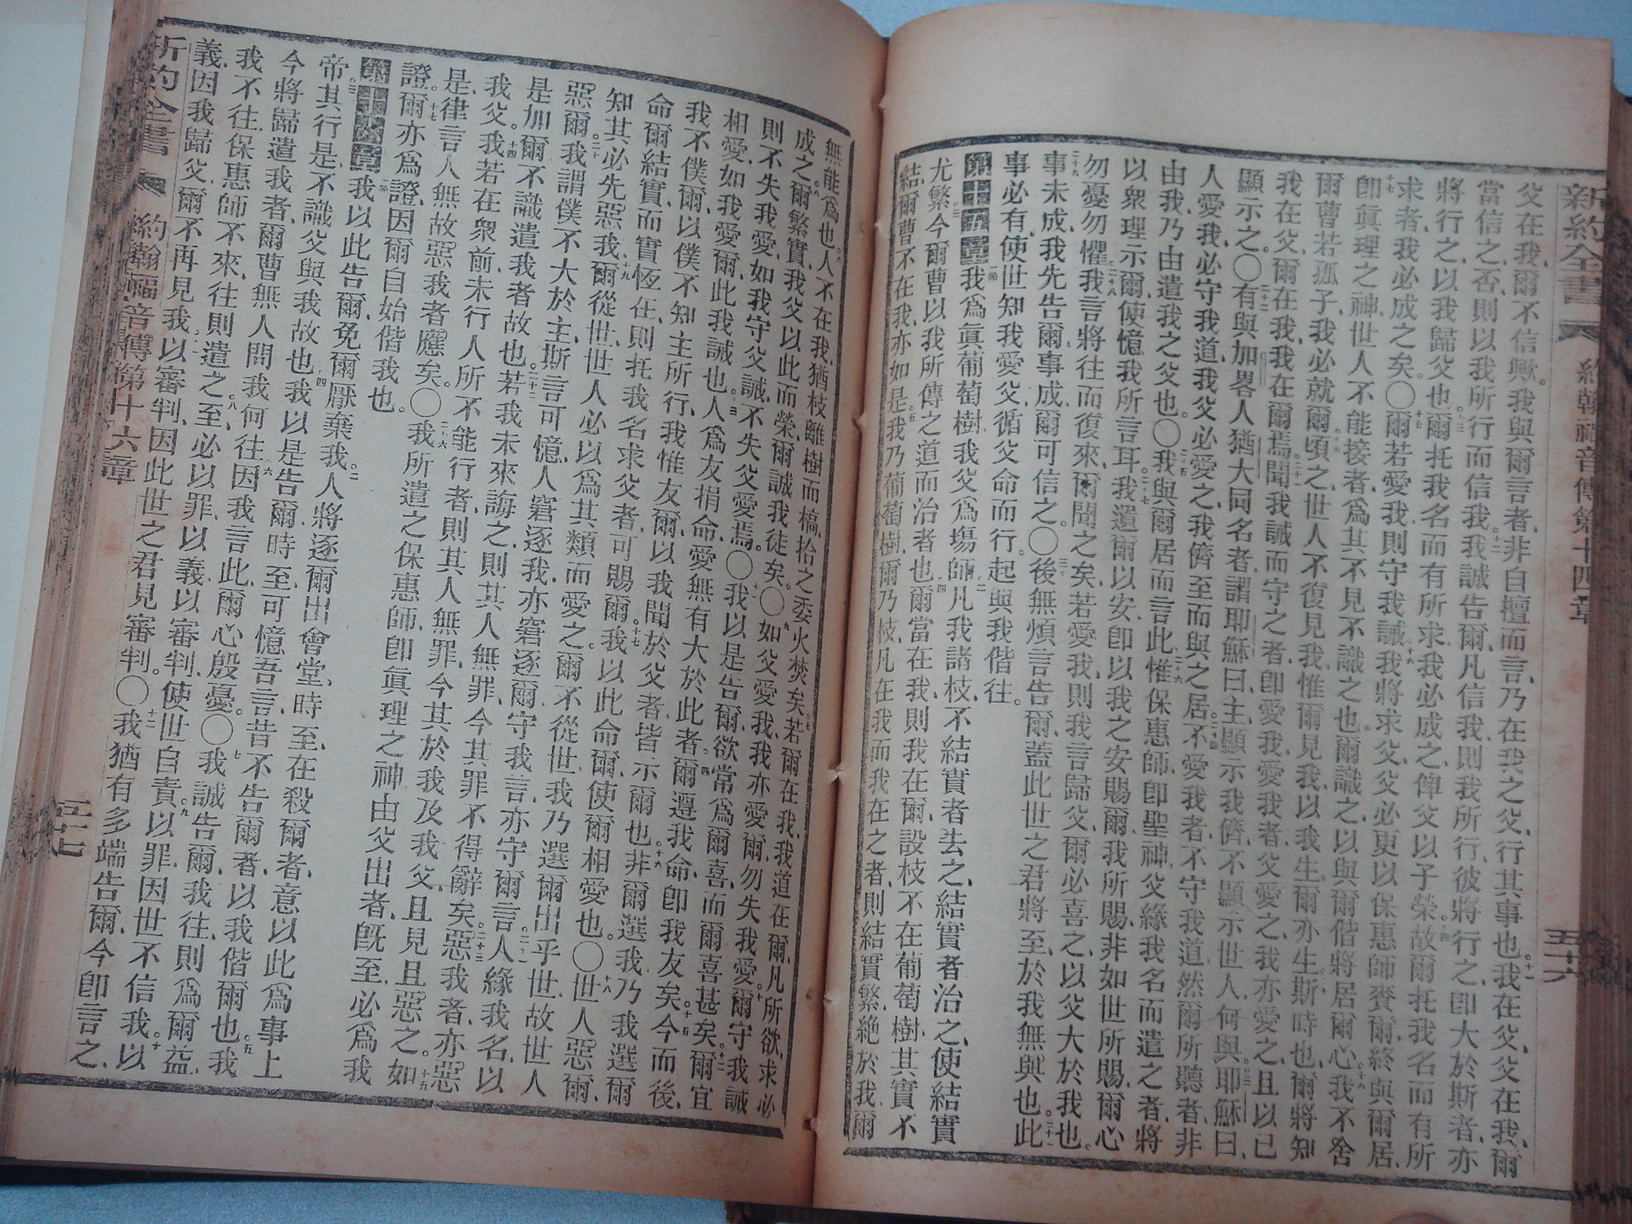 新約全書 約翰福音傳第十四章 五十六
父在我、爾不信歟。我與爾言者、非自擅而言、乃在我之父、行其事也。我在父、父在我、爾
當信之、否則以我所行而信我。我誠告爾、凡信我、則我所行、彼將行之、即大於斯者、亦
將行之、以我歸父也。爾托我名而有所求、我必成之、俾父以子榮。故爾托我名而有所
求者、我必成之矣。〇爾若愛我、則守我誡、我將求父、父必更以保惠師賚爾、終與爾居、
即眞理之神、世人不能接者、爲其不見不識之也。爾識之、以與爾偕、將居爾心、我不舍
爾曹若孤子、我必就爾、頃之、世人不復見我、惟爾見我、以我生、爾亦生、斯時也、爾將知
我在父、爾在我、我在爾焉、聞我誡而守之者、即愛我、愛我者、父愛之、我亦愛之、且以己
顯示之。〇有與加畧人猶大同名者、謂耶穌曰、主顯示我儕、不顯示世人、何與、耶穌曰、
人愛我、必守我道、我父必愛之、我儕至而與之居、不愛我者、不守我道、然爾所聽者、非
由我、乃由遣我之父也。〇我與爾居而言此、惟保惠師、即聖神、父緣我名而遣之者、將
以衆理示爾、使憶我所言耳、我遺爾以安、即以我之安賜爾、我所賜、非如世所賜、爾心
勿憂勿懼、我言將往而復來、爾聞之矣、若愛我、則我言歸父、爾必喜之、以父大於我也。
事未成、我先告爾、事成、爾可信之。〇後無煩言告爾、蓋此世之君將至、於我無與也。此
事必有、使世知我愛父、循父命而行。起、與我偕往。
第十五章 我爲眞葡萄樹、我父爲場師、凡我諸枝、不結實者去之、結實者治之、使結實
尤繁、今爾曹以我所傳之道而治者也、爾當在我、則我在爾、設枝不在葡萄樹、其實不
結、爾曹不在我、亦如是、我乃葡萄樹、爾乃枝、凡在我而我在之者、則結實繁、絕於我、爾
無能爲也、人不在我、猶枝離樹而槁、拾之委火焚矣、若爾在我、我道在爾、凡所欲、求必
成之、爾繁實、我父以此而榮、爾誠我徒矣。〇如父愛我、我亦愛爾、勿失我愛、爾守我誡、
則不失我愛、如我守父誡、不失父愛焉。〇我以是告爾、欲常爲爾喜、而爾喜甚矣、爾宜
相愛、如我愛爾、此我誡也、人爲友捐命、愛無有大於此者、爾遵我命、即我友矣、今而後、
我不僕爾、以僕不知主所行、我惟友爾、以我聞於父者、皆示爾也、非爾選我、乃我選爾、
命爾結實、而實恆在、則托我名求父者、可賜爾、我以此命爾、使爾相愛也。〇世人惡爾、
知其必先惡我、爾從世、世人必以爲其類而愛之、爾不從世、我乃選爾出乎世、故世人
惡爾、我謂僕不大於主、斯言可憶、人窘逐我、亦窘逐爾、守我言、亦守爾言、人緣我名、以
是加爾、不識遣我者故也、若我未來誨之、則其人無罪、今其罪不得辭矣、惡我者、亦惡
我父。我若在衆前、未行人所不能行者、則其人無罪、今其於我及我父、且見且惡之、如
是律言、人無故惡我者應矣。〇我所遣之保惠師、即眞理之神、由父出者、旣至、必爲我
證、爾亦爲證、因爾自始偕我也。
第十六章 我以此告爾、免爾厭棄我、人將逐爾出會堂、時至、在殺爾者、意以此爲事上
帝、其行是、不識父與我故也、我以是告爾、時至、可憶吾言、昔不告爾者、以我偕爾也、我
今將歸遣我者、爾曹無人問我何往、因我言此、爾心殷憂。〇我誠告爾、我往、則爲爾益、
我不往、保惠師不來、往則遣之、至必以罪、以義、以審判、使世自責、以罪因世不信我、以
義因我歸父、爾不再見我、以審判、因此世之君見審判。〇我猶有多端告爾、今即言之、
新約全書 約翰福音傳第十六章 五十七